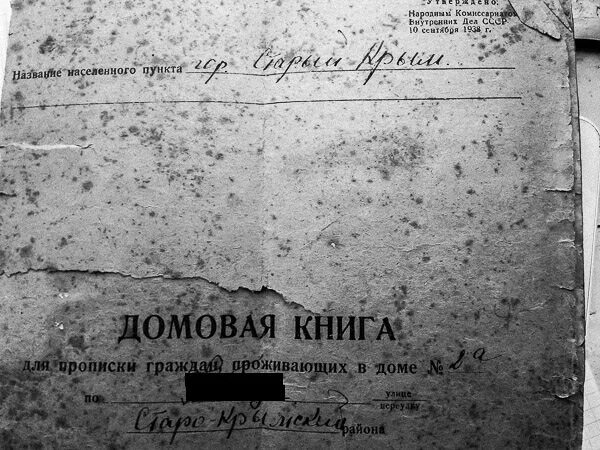 Утверждено:
Народным Комиссариатом
Внутренних Дел СССР
10 сентября 1938 г.
Название населенного пункта гор. Старый Крым.
ДОМОВАЯ КНИГА
для прописки граждан, проживающих в доме № 2а
по улице
переулку
Старо-Крымский района